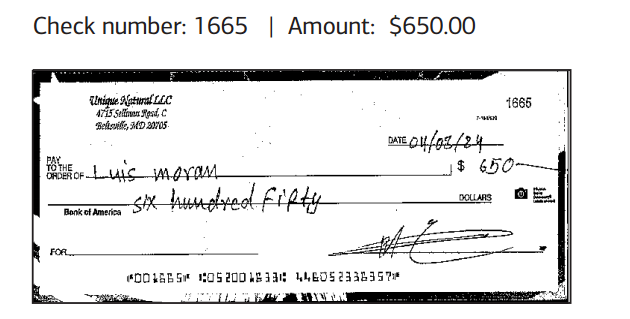 Check number: 1665 | Amount: $650.00
Unique Natural LLC
4715 Sellman Road, C
Beltsville, MD 20705
1665
DATE 04/03/24
PAY TO THE ORDER OF Luis moran $ 650
six hundred Fifty DOLLARS
Bank of America
FOR